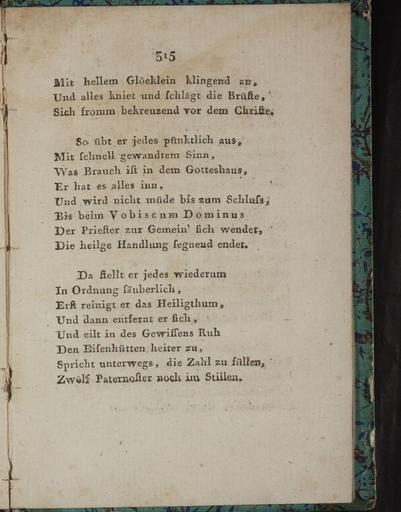 315
Mit hellem Glöcklein klingend an,
Und alles kniet und ſchlägt die Brüſte,
Sich fromm bekreuzend vor dem Chriſte.
So übt er jedes pünktlich aus,
Mit ſchnell gewandtem Sinn,
Was Brauch iſt in dem Gotteshaus,
Er hat es alles inn,
Und wird nicht müde bis zum Schluſs,
Bis beim Vobiscum Dominus
Der Prieſter zur Gemein' ſich wendet,
Die heilge Handlung ſegnend endet.
Da ſtellt er jedes wiederum
In Ordnung ſäuberlich,
Erſt reinigt er das Heiligthum,
Und dann entfernt er ſich,
Und eilt in des Gewiſſens Ruh
Den Eiſenhütten heiter zu,
Spricht unterwegs, die Zahl zu füllen,
Zwölf Paternoſter noch im Stillen.